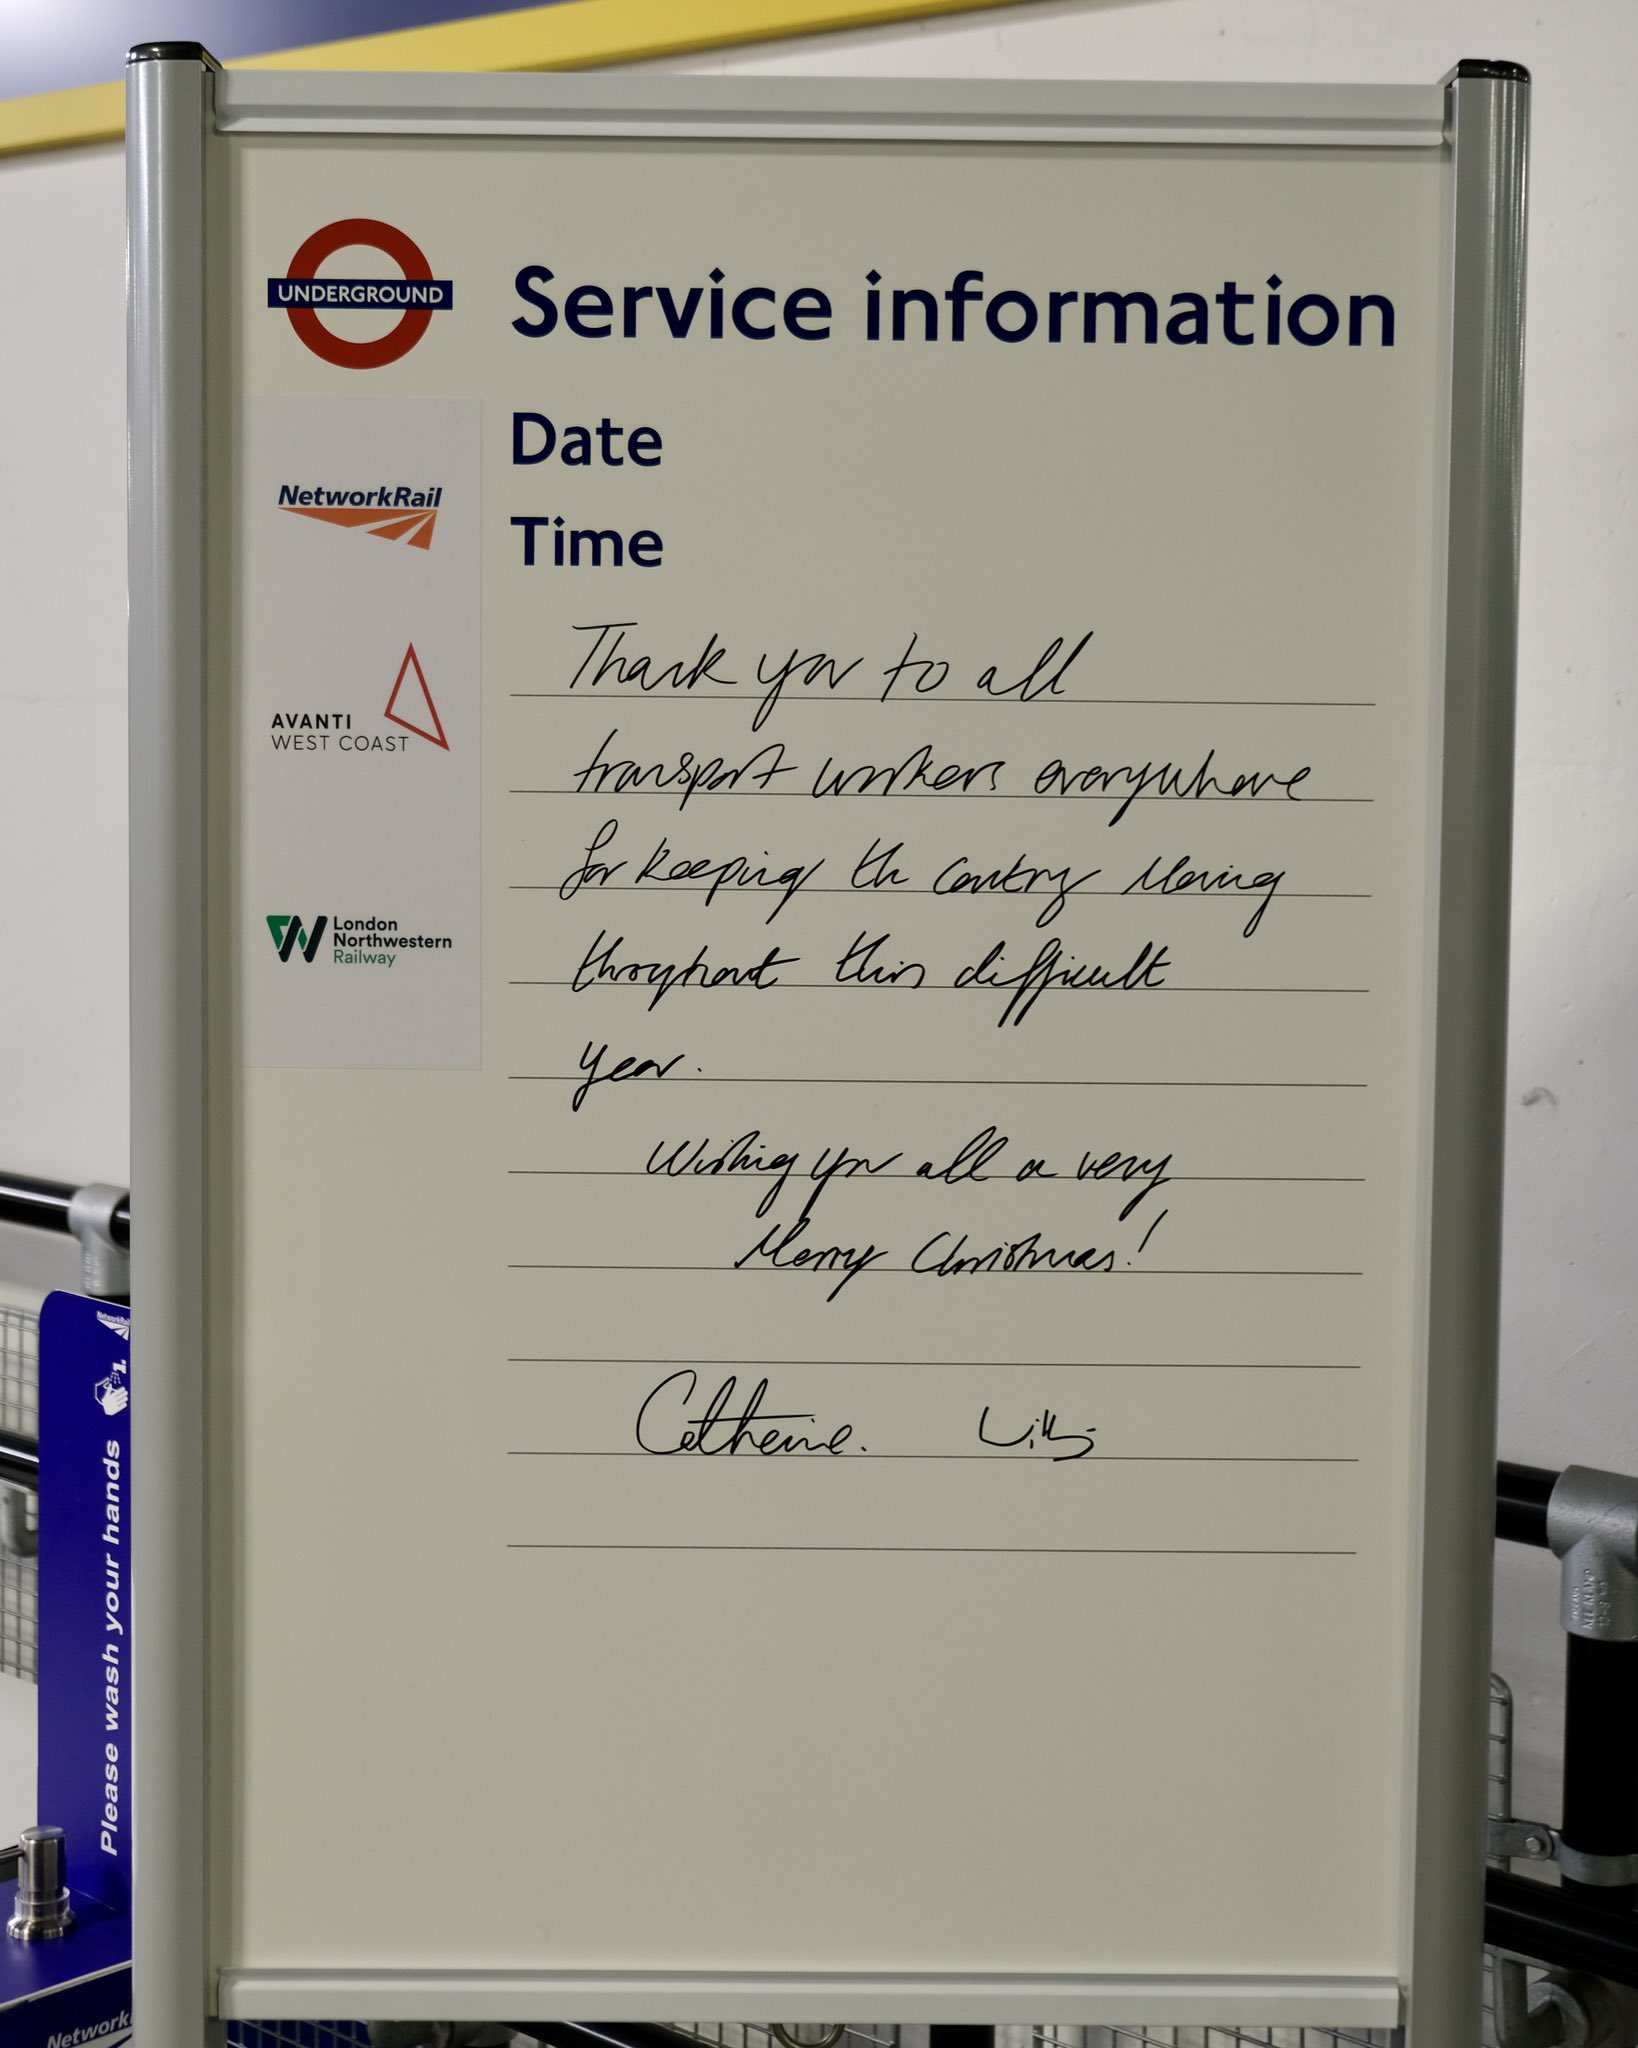 UNDERGROUND
Service information
Date
Time
NetworkRail
AVANTI
WEST COAST
London
Northwestern
Railway
Thank you to all
transport workers everywhere
for keeping the country moving
throughout this difficult
year.
Wishing you all a very
Merry Christmas!
Catherine. William
NetworkRail
1.
Please wash your hands
Network